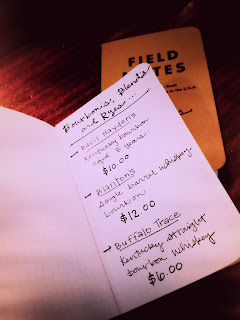 FIELD
NOTES
in the U.S.A.
Bourbons, Blends
and Ryes...
→ Basil Hayden's
Kentucky bourbon
aged 8 years..
$10.00
→ Blantons
Single barrel whiskey
bourbon
$12.00
→ Buffalo Trace
Kentucky straight
bourbon whiskey
$6.00